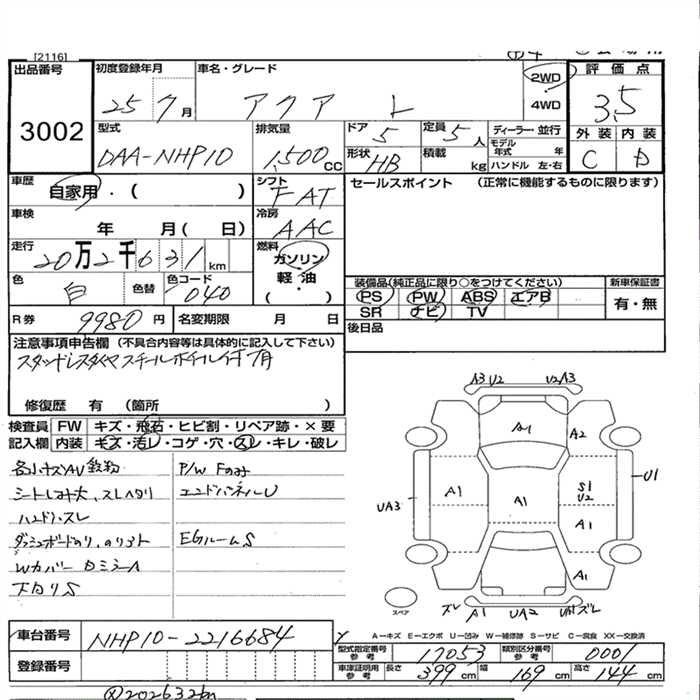 [2116]
出品番号 初度登録年月 車名・グレード 2WD 評価点
25 7月 アクア L 4WD 3.5
3002 外装 内装
型式 排気量 ドア 5 定員 5人 ディーラー・並行 C D
DAA-NHP10 1,500CC 形状 HB 積載 kg モデル年式 年 ハンドル 左・右
車歴 自家用・( ) シフト FAT セールスポイント (正常に機能するものに限ります)
車検 年 月( 日) 冷房 AAC
走行 20万2千631km 燃料 ガソリン 軽油 (・)
色 白 色替 色コード 040
装備品(純正品に限り○をつけてください) 新車保証書
PS PW ABS エアB 有・無
SR ナビ TV
R券 9980円 名変期限 月 日 後日品
注意事項申告欄 (不具合内容等は具体的に記入して下さい)
修復歴 有 (箇所 )
検査員 FW キズ・飛石・ヒビ割・リペア跡・×要
記入欄 内装 キズ・汚レ・コゲ・穴・スレ・キレ・破レ
P/W Fのみ
シートしみ大、スレ ヘタリ エンドパネルU
ハンドルスレ
ダッシュボードのり、のり多ト EGルームS
Wカバー
下回りS
A3 U2 U2 A3
A1 A2
A1 A1 S1 U2 U1
UA3
A1
A1
スペア ズレ A1 UA2
A-キズ E-エクボ U-凹み W-補修跡 S-サビ C-腐食 XX-交換済
車台番号 NHP10-2216684
型式指定番号 参考 17053 類別区分番号 参考 0001
登録番号 車庫証明用 参考 長さ 399cm 幅 169cm 高さ 144cm
202632km